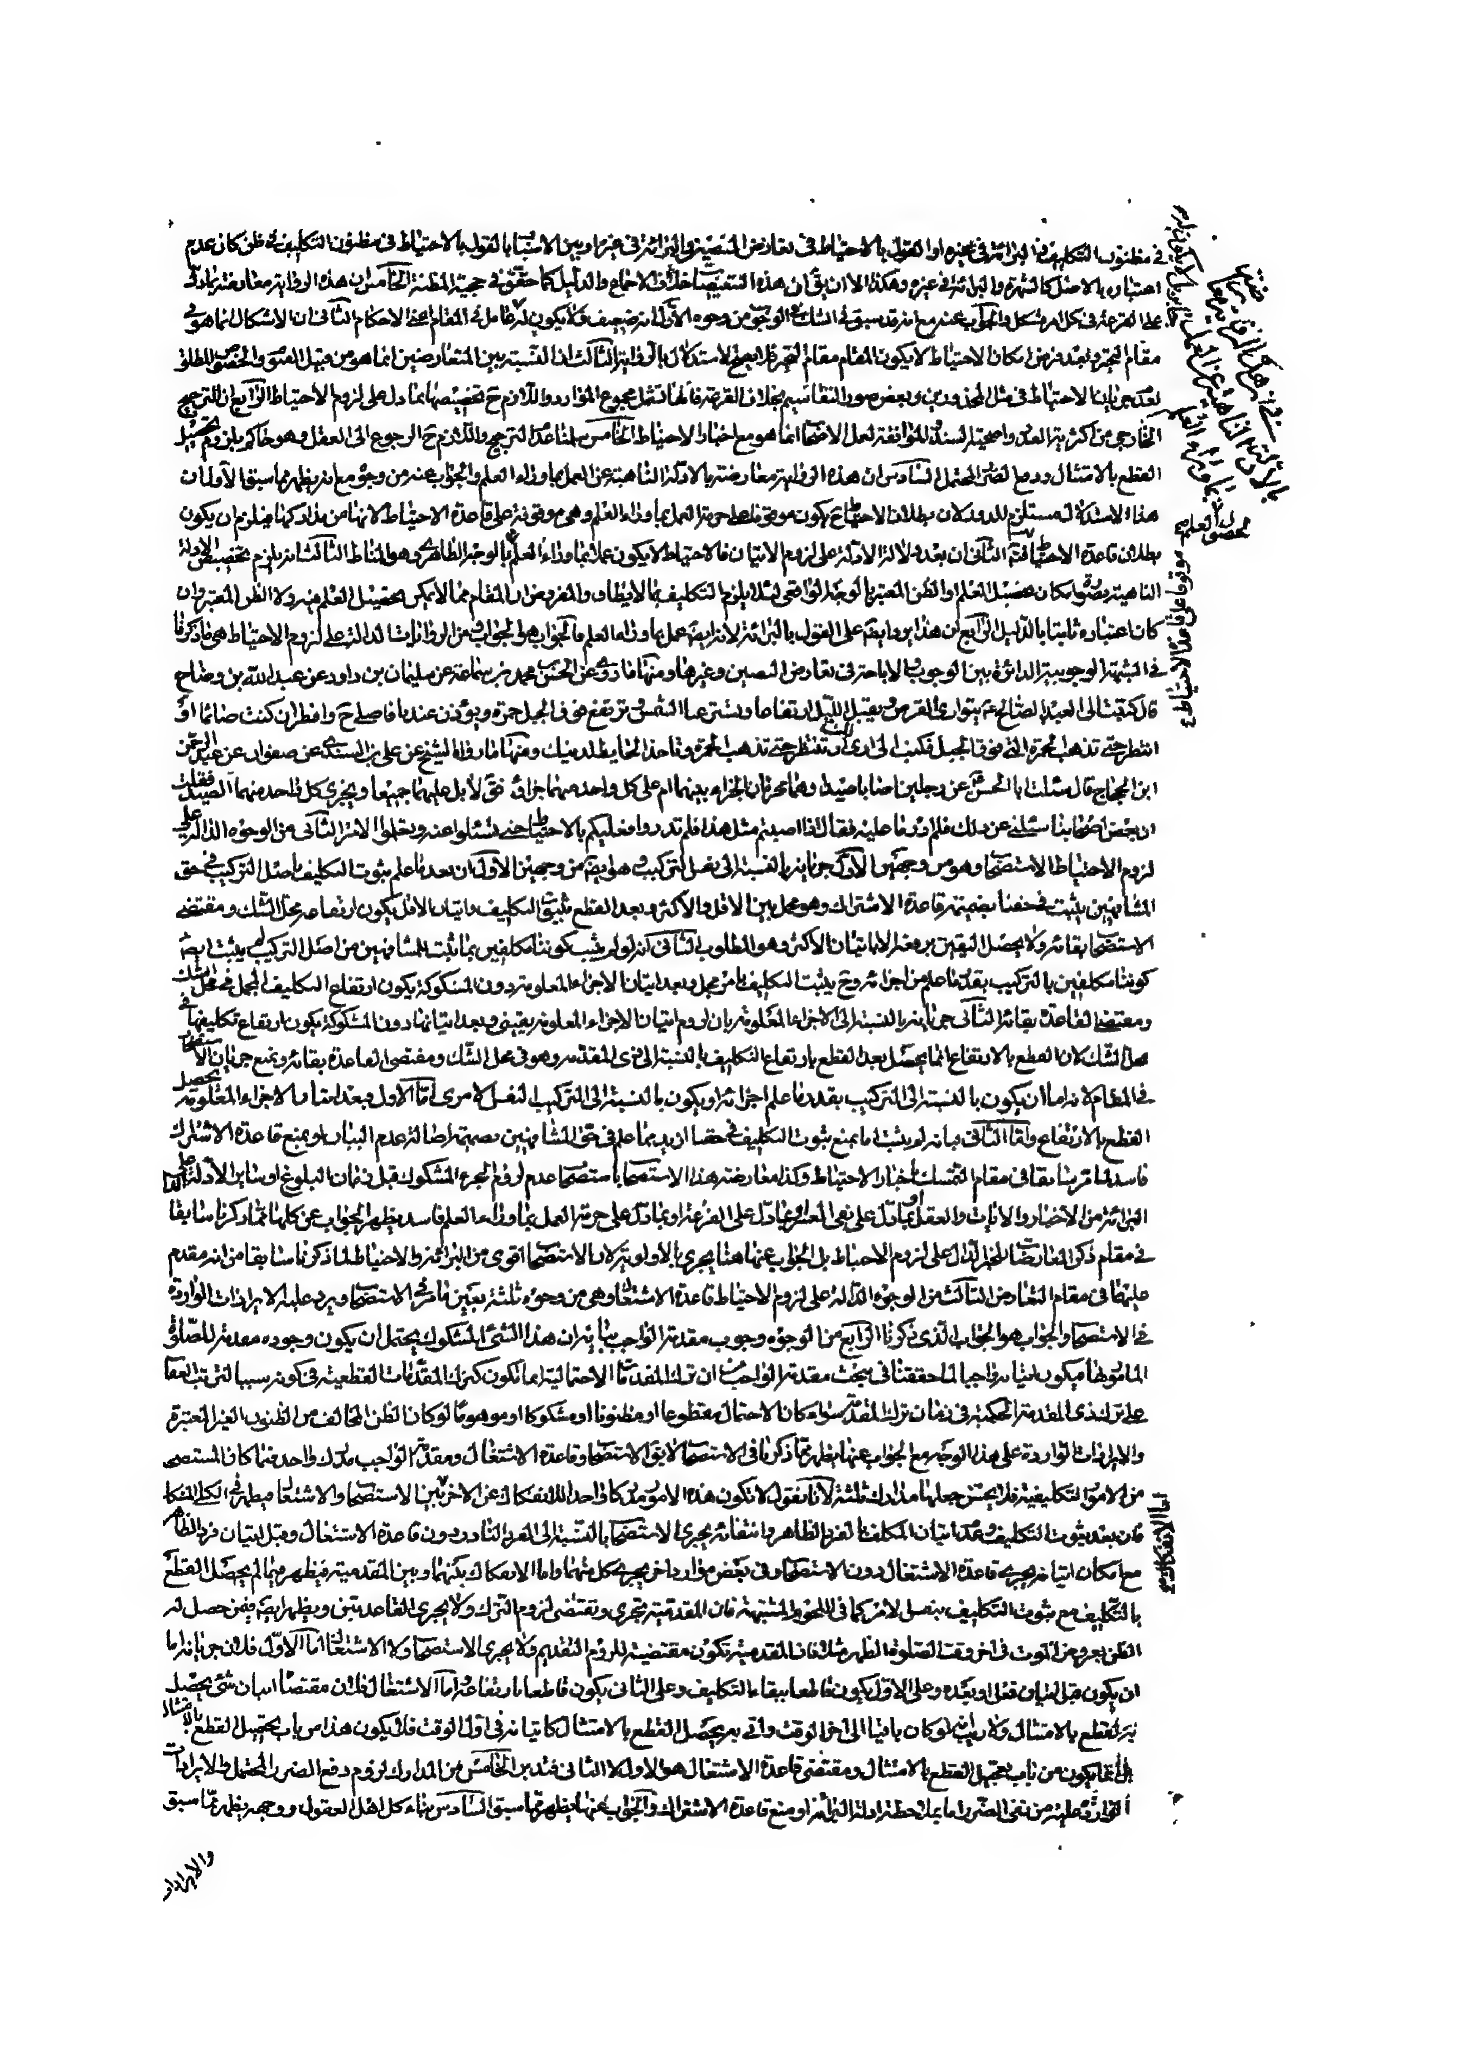 في مظنون التكليف والبرائة في غيره او القول بالاحتياط في تعارض النصين والبرائة في غيره وبين الاسباب بالقول بالاحتياط في مظنون التكليف في ظن كان عدم
اعتباره بالاصل كالشهرة والبرائة في غيره وهكذا الا ان يق ان هذه التفصيلات خلاف الاجماع والدليل كما حقق في حجية المظنة الخامس ان هذه الرواية معارضة بما دل
على القرعة في كل امر مشكل والجواب عنه مع انه قد سبق في الشك في الوجوب من وجوه الاول انه ضعيف ولا يكون له عامل في المقام اعني الاحكام الثاني ان الاشكال انما هو في
مقام التحير وبعد فرض امكان الاحتياط لا يكون المقام مقام التحير فلا يصح الاستدلال بالرواية الثالث ان النسبة بين المتعارضين انما هو من قبيل العموم والخصوص المطلق
لعدم جريان الاحتياط في مثل المحذورين وبعض صور التقاسيم بخلاف القرعة فانها تشمل مجموع الموارد واللازم ح تخصيصها بما دل على لزوم الاحتياط الرابع ان الترجيح
الخارجي من اكثرية العدد واصحية السند والموافقة لعمل الاصحاب انما هو مع اخبار الاحتياط الخامس سلمنا عدم الترجيح واللازم ح الرجوع الى العقل وهو حاكم بلزوم تحصيل
القطع بالامتثال ودفع الضرر المحتمل السادس ان هذه الرواية معارضة بالادلة الناهية عن العمل بما وراء العلم والجواب عنه من وجوه مع انه يظهر مما سبق الاول ان
هذا الاستدلال مستلزم للدور لان بطلان الاحتياط ح يكون موقوفا على حرمة العمل بما وراء العلم وهي موقوفة على قاعدة الاحتياط لانها من مداركها فيلزم ان يكون
بطلان قاعدة الاحتياط الثاني ان بعد دلالة الادلة على لزوم الاتيان فالاحتياط لا يكون عملا بما وراء العلم بالوجه الظاهري وهو المناط الثالث انه يلزم تخصيص الادلة
الناهية بصورة امكان تحصيل العلم او الظن المعتبر بالوجه الواقعي لئلا يلزم التكليف بما لا يطاق والمفروض ان المقام مما لا يمكن تحصيل العلم فيه ولا الظن المعتبر وان
كان اعتباره ثابتا بالدليل الرابع ان هذا يرد ايضا على القول بالبرائة لانه ايضا عمل بما وراء العلم فالجواب هو الجواب ومن الروايات الدالة على لزوم الاحتياط هي ما ذكرنا
في الشبهة الوجوبية الدائرة بين الوجوب والاباحة في تعارض النصين وغيرها ومنها ما روي عن الحسن بن محمد بن سماعة عن سليمان بن داود عن عبد الله بن وضاح
قال كتبت الى العبد الصالح ع يتوارى القرص ويقبل الليل ارتفاعا وتستر عنا الشمس وترتفع فوق الجبل حمرة ويؤذن عندنا فاصلي ح وافطر ان كنت صائما او
انتظر حتى تذهب الحمرة التي فوق الجبل فكتب الى ارى لك ان تنتظر حتى تذهب الحمرة وتاخذ الحايطة لدينك ومنها ما رواه الشيخ عن علي بن السندي عن صفوان عن عبد الرحمن
ابن الحجاج قال سئلت ابا الحسن ع عن رجلين اصابا صيدا وهما محرمان الجزاء بينهما ام على كل واحد منهما جزاء فق لا بل عليهما جميعا ويجزي كل واحد منهما الصيد فقلت
ان بعض اصحابنا سئلني عن ذلك فلم ادر ما عليه فقال اذا اصبتم مثل هذا فلم تدروا فعليكم بالاحتياط حتى تسئلوا عنه وتعلموا الامر الثاني من الوجوه الدالة على
لزوم الاحتياط الاستصحاب وهو من وجهين الاول جريانه بالنسبة الى نفس التركيب وهو ايضا من وجهين الاول ان بعد ما علم ثبوت التكليف باصل التركيب في حق
المشافهين يثبت في حقنا بضميمة قاعدة الاشتراك وهو مجمل بين الاقل والاكثر وبعد القطع بثبوت التكليف واتيان الاقل يكون ارتفاعه محل الشك ومقتضى
الاستصحاب بقائه ولا يحصل اليقين برفعه الا باتيان الاكثر وهو المطلوب الثاني انه لو لم يثبت كوننا مكلفين بما ثبت للمشافهين من اصل التركيب لم يثبت ايضا
كوننا مكلفين بالتركيب بقدر ما علم من اجزائه وح يثبت التكليف بامر مجمل وبعد اتيان الاجزاء المعلومة دون المشكوكة يكون ارتفاع التكليف المجمل في محل الشك
ومقتضى القاعدة بقائه الثاني جريانه بالنسبة الى الاجزاء المعلومة بان لزوم اتيان الاجزاء المعلومة يقيني وبعد اتيانها دون المشكوكة يكون ارتفاع تكليفها في
محل الشك لان القطع بالارتفاع انما يحصل بعد القطع بارتفاع التكليف بالنسبة الى ذي المقدمة وهو في محل الشك ومقتضى القاعدة بقائه ويمنع جريان الاستصحاب
في المقام لانه اما ان يكون بالنسبة الى التركيب بقدر ما علم اجزائه او يكون بالنسبة الى التركيب النفس الامري اما الاول فبعد اتيان الاجزاء المعلومة يحصل
القطع بالارتفاع واما الثاني فبانه لم يثبت اما بمنع ثبوت التكليف في حقنا ازيد مما علم في حق المشافهين بضميمة اصالة عدم البيان او بمنع قاعدة الاشتراك
فاسد لما قررنا سابقا في مقام التمسك باخبار الاحتياط وكذا معارضة هذا الاستصحاب باستصحاب عدم لزوم الجزء المشكوك قبل زمان البلوغ او بساير الادلة الدالة على
البرائة من الاخبار والايات والعقل او بما دل على نفي العسر او بما دل على القرعة او بما دل على حرمة العمل بما وراء العلم فاسد يظهر الجواب عن كلها مما ذكرنا سابقا
في مقام ذكر المعارضات للخبر الدال على لزوم الاحتياط بل الجواب عنها هنا يجري بالاولوية لان الاستصحاب اقوى من البرائة والاحتياط لما ذكرنا سابقا من انه مقدم
عليهما في مقام التعارض الثالث من الوجوه الدالة على لزوم الاحتياط قاعدة الاشتغال وهي من وجوه ثلثة بعين ما مر في الاستصحاب ويرد عليه الايرادات الواردة
في الاستصحاب والجواب هو الجواب الذي ذكرنا الرابع من الوجوه وجوب مقدمة الواجب بيانه ان هذا الشئ المشكوك يحتمل ان يكون وجوده مقدمة للصلوة
المامور بها فيكون اتيانه واجبا لما حققنا في مبحث مقدمة الواجب من ان ترك المقدمات الاحتمالية انما تكون كترك المقدمات القطعية في كونه سببا لترتب العقاب
على ترك ذي المقدمة الحكمية في زمان ترك المقدمة سواء كان الاحتمال مقطوعا او مظنونا او مشكوكا او موهوما لو كان الظن المخالف من الظنون الغير المعتبرة
والايرادات الواردة على هذا الوجه مع الجواب عنها يظهر مما ذكرنا في الاستصحاب لا يق الاستصحاب وقاعدة الاشتغال ومقدمة الواجب مدرك واحد فيما كان المستصحب
من الامور التكليفية فلا يحسن جعلها مدارك ثلثة لانا نقول لا تكون هذه الامور مدركا واحدا للانفكاك عن الاخر بين الاستصحاب والاشتغال فيظهر في التكليف المشكوك
فان بعد ثبوت التكليف وعند اتيان المكلف الفرد الظاهر وانتفائه يجري الاستصحاب بالنسبة الى الفرد النادر دون قاعدة الاشتغال وقبل اتيان فرد الظاهر
مع امكان اتيانه يجري قاعدة الاشتغال دون الاستصحاب وفي بعض موارد اخر يجري كل منهما واما الانفكاك بينهما وبين المقدمية فيظهر فيما لم يحصل القطع
بالتكليف مع ثبوت التكليف بنفس الامر كما في اللحوم المشتبهة فان المقدمية تجري وتقتضي لزوم الترك ولا يجري القاعدتين ويظهر ايضا فيمن حصل له
الظن بعروض الموت في اخر وقت الصلوة الظهر مثلا فان المقدمية تكون مقتضية للزوم التقديم ولا يجري الاستصحاب ولا الاشتغال اما الاول فلان جريانه اما
ان يكون قبل اتيان فعل او بعده وعلى الاول يكون قاطعا ببقاء التكليف وعلى الثاني يكون قاطعا بارتفاعه اما الاشتغال فلان مقتضاه اتيان شئ يحصل
به القطع بالامتثال ولا ريب انه لو كان باقيا الى آخر الوقت واتى به يحصل القطع بالامتثال كاتيانه في اول الوقت فلا يكون هذا من باب تحصيل القطع بالامتثال
بل انما يكون من باب تعجيل القطع بالامتثال ومقتضى قاعدة الاشتغال هو الاول لا الثاني فتدبر الخامس من المدارك لزوم دفع الضرر المحتمل والايرادات
الواردة عليه من نفي الضرر اما بملاحظة ادلة البرائة او منع قاعدة الاشتراك والجواب عنها يظهر مما سبق السادس بناء كل اهل العقول ووجهه يظهر مما سبق
والايرادات